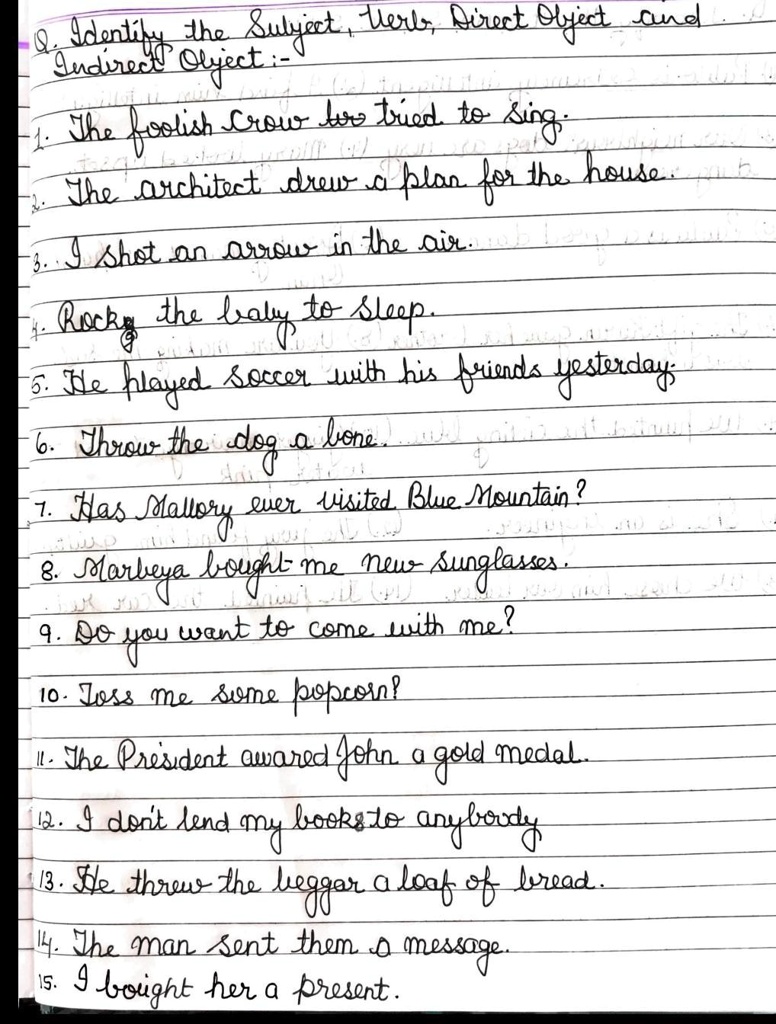 Q. Identify the Subject, Verb, Direct Object and
Indirect Object :-
1. The foolish Crow tried to sing.
2. The architect drew a plan for the house.
3. I shot an arrow in the air.
4. Rock the baby to sleep.
5. He played soccer with his friends yesterday.
6. Throw the dog a bone.
7. Has Mallory ever visited Blue Mountain?
8. Marbeya bought me new sunglasses.
9. Do you want to come with me?
10. Toss me some popcorn?
11. The President awared John a gold medal.
12. I don't lend my books to anyboody
13. He threw the beggar a loaf of bread.
14. The man sent them a message.
15. I bought her a present.